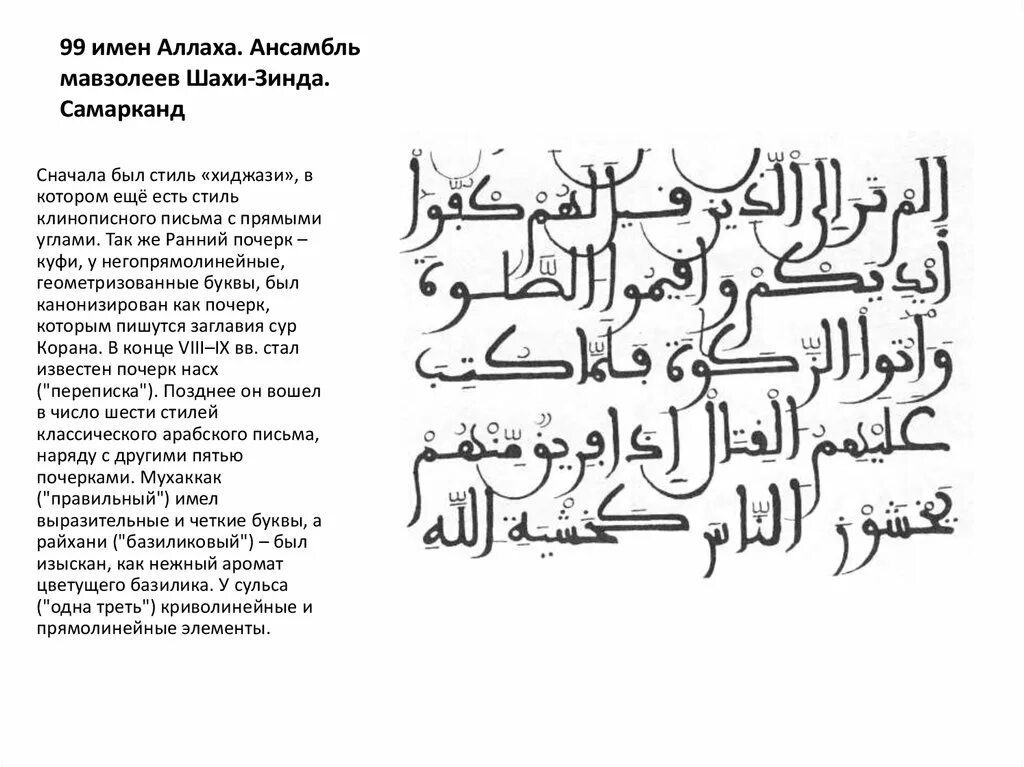 99 имен Аллаха. Ансамбль
мавзолеев Шахи-Зинда.
Самарканд
Сначала был стиль «хиджази», в
котором ещё есть стиль
клинописного письма с прямыми
углами. Так же Ранний почерк –
куфи, у негопрямолинейные,
геометризованные буквы, был
канонизирован как почерк,
которым пишутся заглавия сур
Корана. В конце VIII–IX вв. стал
известен почерк насх
("переписка"). Позднее он вошел
в число шести стилей
классического арабского письма,
наряду с другими пятью
почерками. Мухаккак
("правильный") имел
выразительные и четкие буквы, а
райхани ("базиликовый") – был
изыскан, как нежный аромат
цветущего базилика. У сульса
("одна треть") криволинейные и
прямолинейные элементы.
الم تر الى الذين قيل لهم كفوا
أيديكم وأقيموا الصلوة
وآتوا الزكوة فلما كتب
عليهم القتال إذا فريق منهم
يخشون الناس كخشية الله